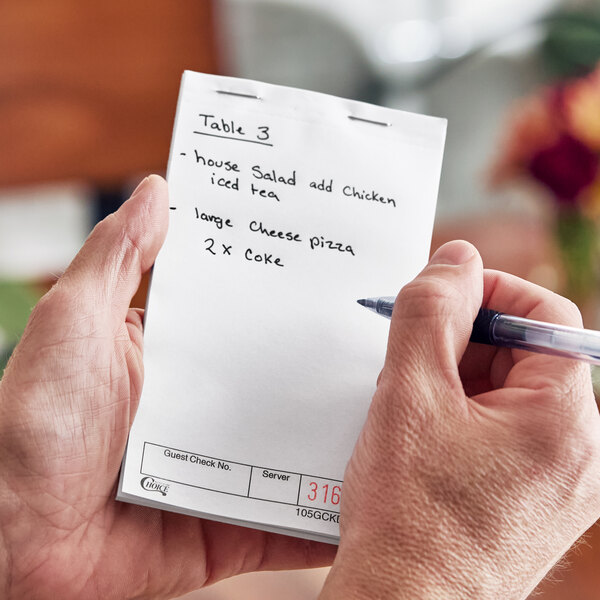 Table 3
- house Salad add Chicken
iced tea
- large Cheese pizza
2 x Coke
Guest Check No.
Server
316
CHOICE
105GCK